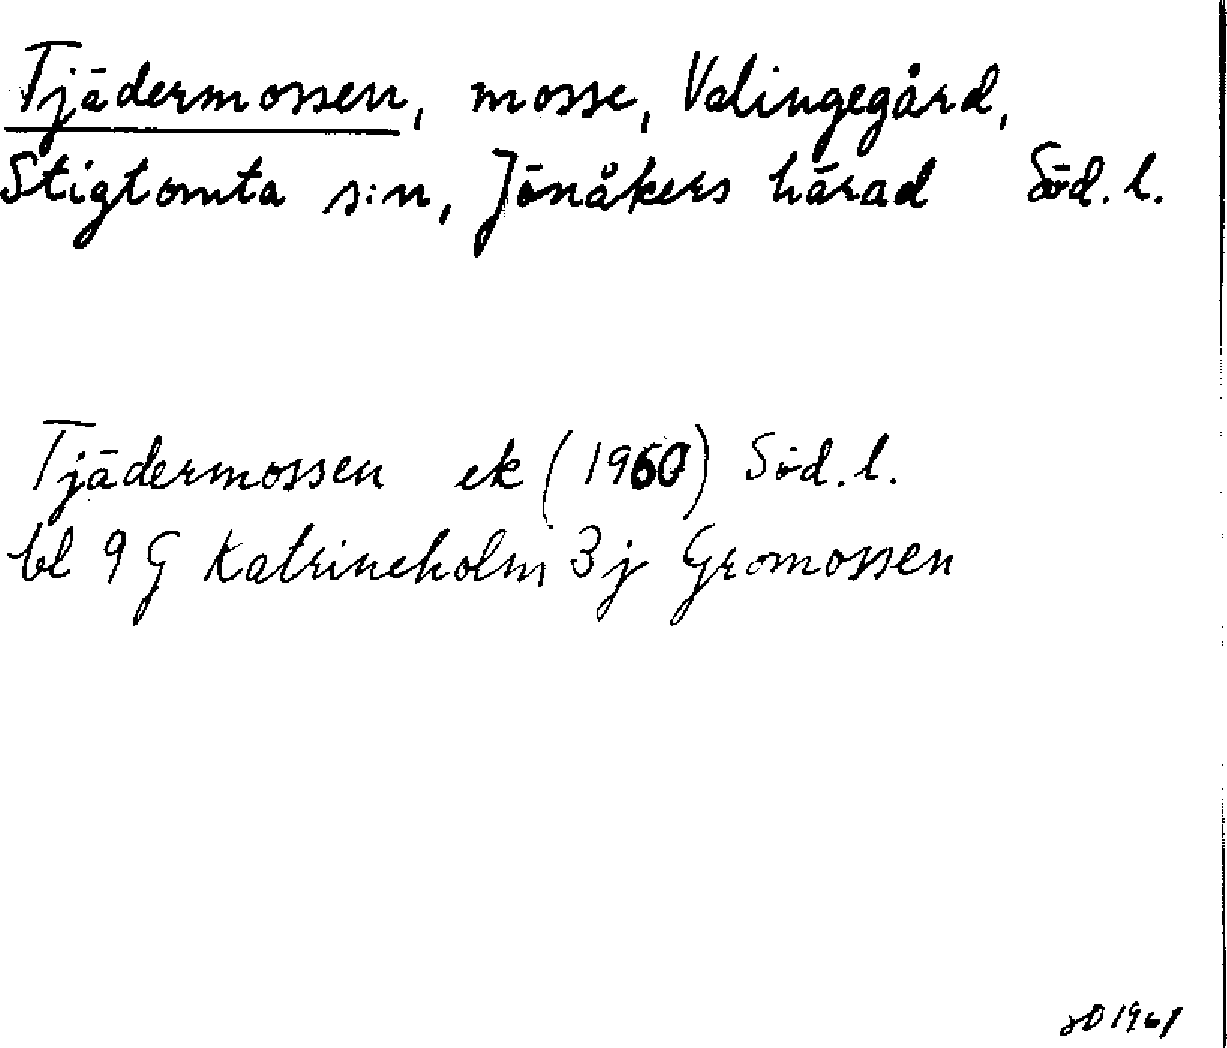 Tjädermossen, mosse, Valingegård,
Stigtomta s:n, Jönåkers härad Söd. l.
Tjädermossen ek (1960) Söd. l.
bl 9 G Katrineholm 3 j Gromossen
1961